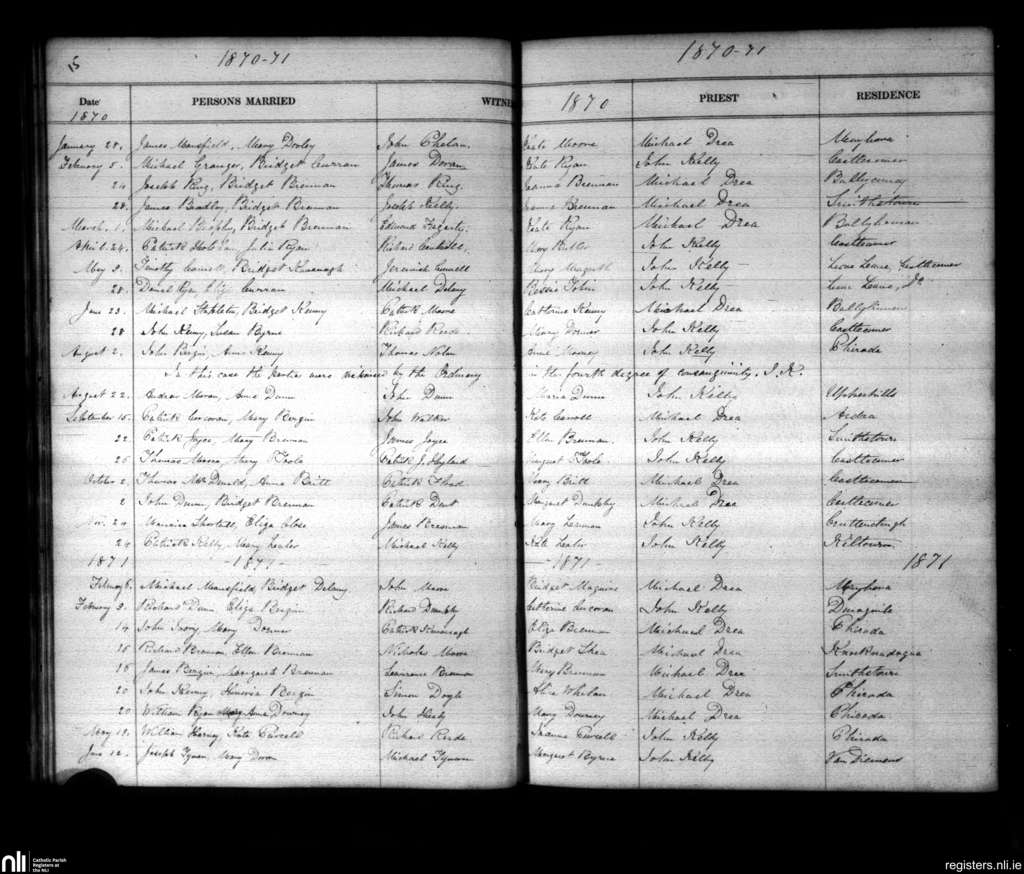 5
1870-71
1870-71
Date PERSONS MARRIED WITNE 1870 PRIEST RESIDENCE
1870
January 28. James Mansfield, Mary Dooley John Phelan. Kate Moore Michael Drea Moyhora
February 5. Michael Granger, Bridget Curran James Doran Kate Ryan John Kelly Castlecomer
24 Joseph Ring, Bridget Brennan Thomas Ring. Joanna Brennan Michael Drea
28. James Bradley, Bridget Brennan Joseph Kelly. Brennan Michael Drea Smithstown
March. 1. Michael Brophy, Bridget Brennan Edward Fogarty. Kate Ryan Michael Drea
April. 24. Patrick Julia Ryan Richard Mary John Kelly Castlecomer
May 8. Timothy Bridget Kavanagh Jeremiah Mary John Kelly Castlecomer
28. Daniel Eliza Curran Michael Delany Bessie John Kelly Do
June 23. Michael Stapleton, Bridget Kenny Patrick Moore Catherine Kenny Michael Drea
28 John Kenny, Susan Byrne Richard Mary Dormer John Kelly Castlecomer
August 2. John Bergin, Anne Kenny Thomas Nolan John Kelly Chirada
In this case the parties were by the Ordinary in the fourth degree of consanguinity. J. K.
August 22. Andrew Moran, Anne Dunn John Dunn Maria Dunne John Kelly
September 15. Patrick Corcoran, Mary Bergin John Walker Kate Carroll Michael Drea Ardra
22. Patrick Joyce, Mary Brennan James Joyce Ellen Brennan. John Kelly Smithstown
25 Thomas Moore, Mary Toole Patrick J. Hyland Margaret Toole. John Kelly Castlecomer
October 2. Thomas McDonald, Anne Britt Patrick Mary Britt Michael Drea Castlecomer
2 John Dunn, Bridget Brennan Patrick Dent Margaret Michael Drea Castlecomer
24 Maurice Shortall, Eliza Close James Brennan Mary Lennon John Kelly Cruttenclough
24 Patrick Kelly, Mary Lawlor Michael Kelly Kate Lawlor John Kelly Kiltown
1871 - 1871 - - 1871 - 1871
February 6. Michael Mansfield, Bridget Delany John Moore Bridget Maguire Michael Drea Moyhora
February 9. Richard Dunn Eliza Bergin Richard Catherine John Kelly Dunaguile
14 John Ivory, Mary Dormer Patrick Kavanagh Eliza Brennan Michael Drea Chirada
16 Richard Brennan, Ellen Brennan Nicholas Moore Bridget Shea Michael Drea
18 James Bergin, Margaret Brennan Lawrence Brennan Mary Brennan Michael Drea Smithstown
20 John Kenny, Bergin Simon Doyle Alice Whelan Michael Drea Chirada
20 William Ryan Anne Downey John Healy Mary Downey Michael Drea Chirada
May 19. William Kate Purcell Richard Joanne Purcell John Kelly Chirada
June 12. Joseph Tynan, Mary Doran Michael Tynan Margaret Byrne John Kelly Van Diemens
nli
Catholic Parish
Registers at
the NLI
registers.nli.ie